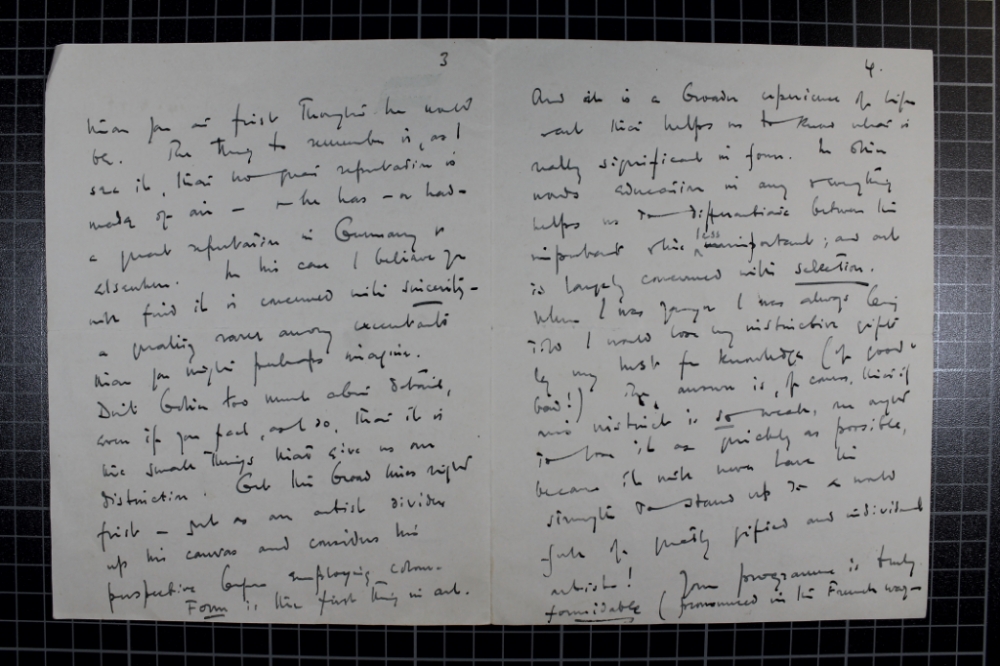 3
than you at first thought he would
be. The thing to remember is, as I
see it, that no great reputation is
made of air – & he has – or had –
a great reputation in Germany &
elsewhere. In his case I believe you
will find it is concerned with sincerity –
a quality rarer among executants
than you might perhaps imagine.
Don't bother too much about details,
even if you feel, as I do, that it is
the small things that give us our
distinction. Get the broad lines right
first – just as an artist divides
up his canvas and considers his
perspective before employing colour.
Form is the first thing in art.
4.
And it is a broader experience of life
art that helps us to know what is
really significant in form. In other
words education in any & everything
helps us to differentiate between the
important & the less important; and art
is largely concerned with selection.
When I was younger I was always being
told I would lose my instinctive gifts
by my lust for knowledge (of good &
bad!) The answer is, of course, that if
instinct is so weak, we ought
to lose it as quickly as possible,
because it will never have the
strength to stand up to a world
full of greatly gifted and individual
artists! Your programme is truly
formidable (pronounced in the French way –